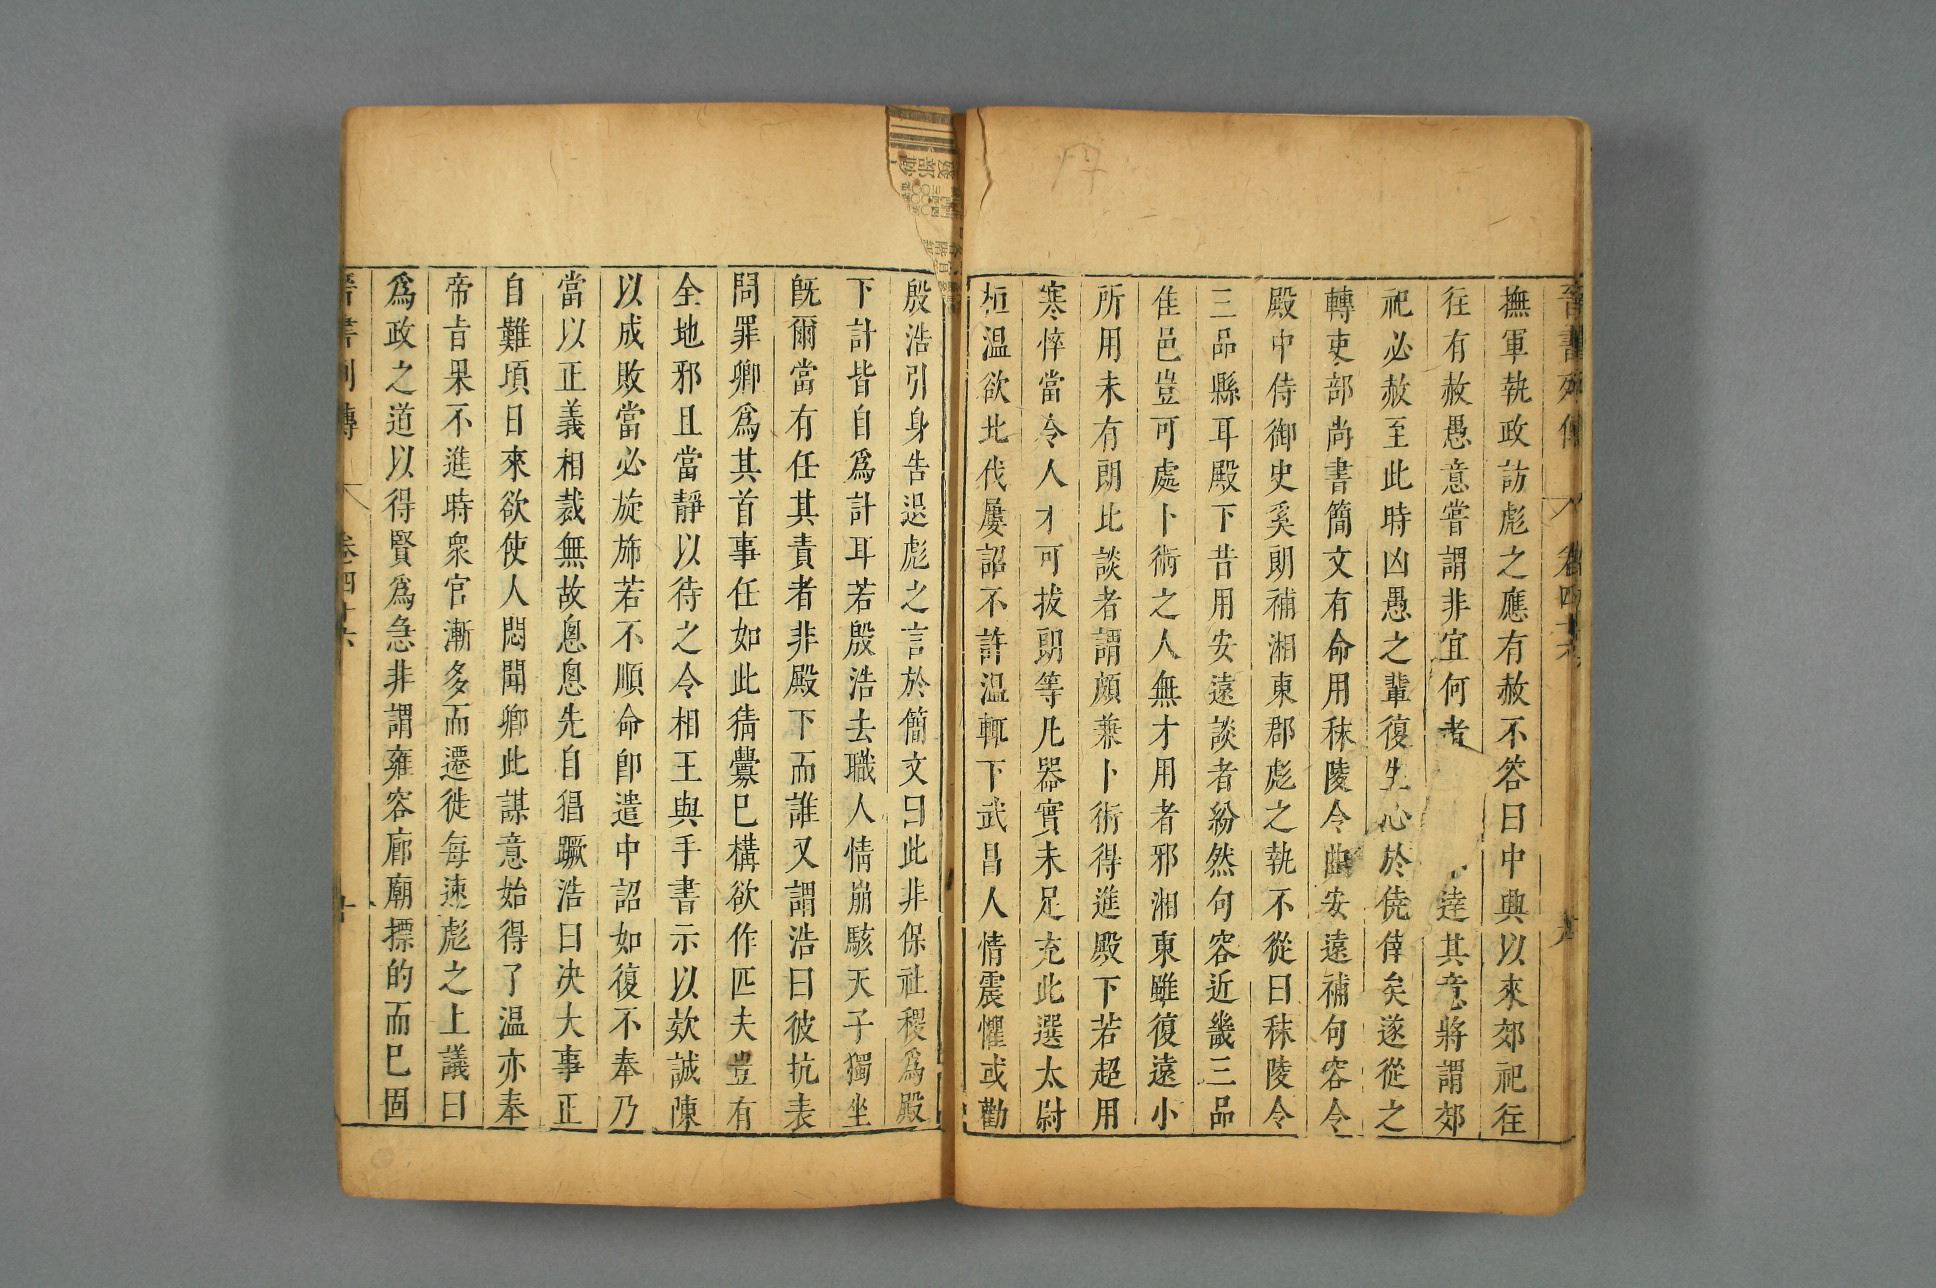 晉書列傳 卷四十六
撫軍執政訪彪之應有赦不答曰中興以來郊祀往
往有赦愚意嘗謂非宜何者 達其意將謂郊
祀必赦至此時凶愚之輩復生心於僥倖矣遂從之
轉吏部尚書簡文有命用秣陵令曲安遠補句容令
殿中侍御史奚朗補湘東郡彪之執不從曰秣陵令
三品縣耳殿下昔用安遠談者紛然句容近畿三品
佳邑豈可處卜術之人無才用者邪湘東雖復遠小
所用未有朗比談者謂頗兼卜術得進殿下若超用
寒悴當令人才可拔朗等凡器實未足充此選太尉
桓温欲北伐屢詔不許温輒下武昌人情震懼或勸
殷浩引身告退彪之言於簡文曰此非保社稷爲殿
下計皆自爲計耳若殷浩去職人情崩駭天子獨坐
既爾當有任其責者非殿下而誰又謂浩曰彼抗表
問罪卿爲其首事任如此猜釁已構欲作匹夫豈有
全地邪且當靜以待之令相王與手書示以欵誠陳
以成敗當必旋斾若不順命卽遣中詔如復不奉乃
當以正義相裁無故悤悤先自猖蹶浩曰决大事正
自難頃日來欲使人悶聞卿此謀意始得了温亦奉
帝旨果不進時衆官漸多而遷徙每速彪之上議曰
爲政之道以得賢爲急非謂雍容廊廟摽的而已固
晉書列傳 卷四十六 十